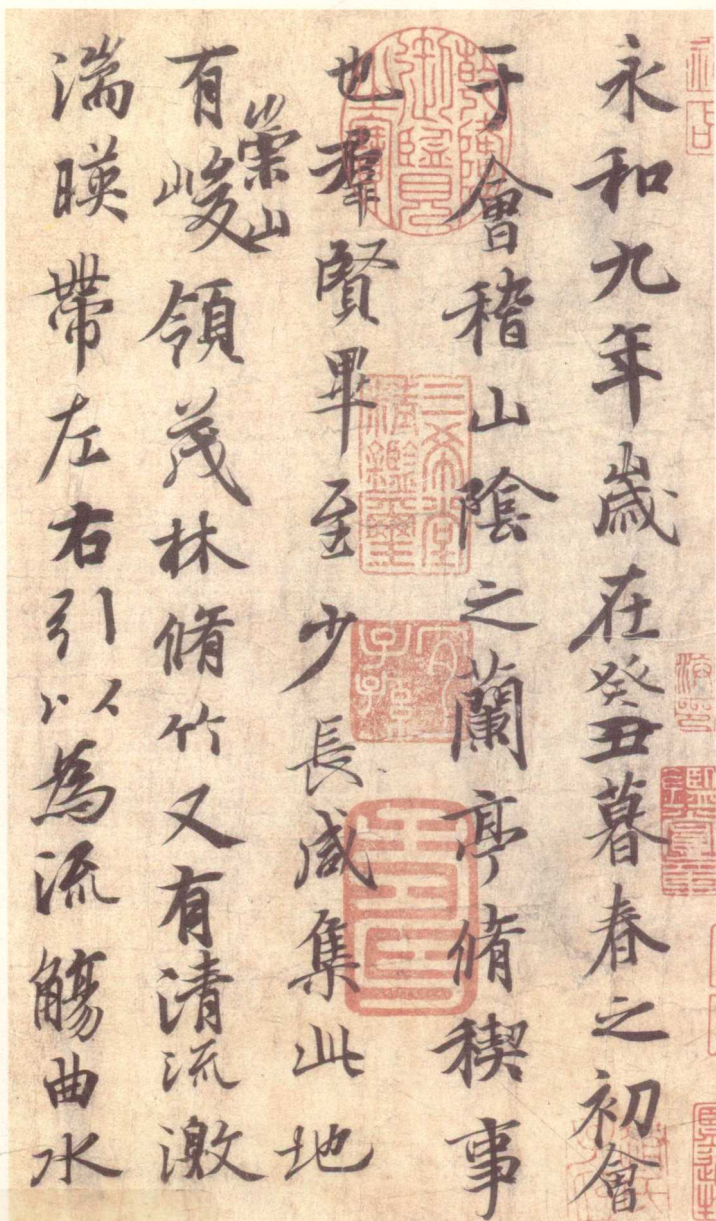 永和九年歲在癸丑暮春之初會
于會稽山陰之蘭亭脩稧事
也羣賢畢至少長咸集此地
有崇山峻領茂林脩竹又有清流激
湍暎帶左右引以為流觴曲水
三希堂精鑑璽
宜子孫